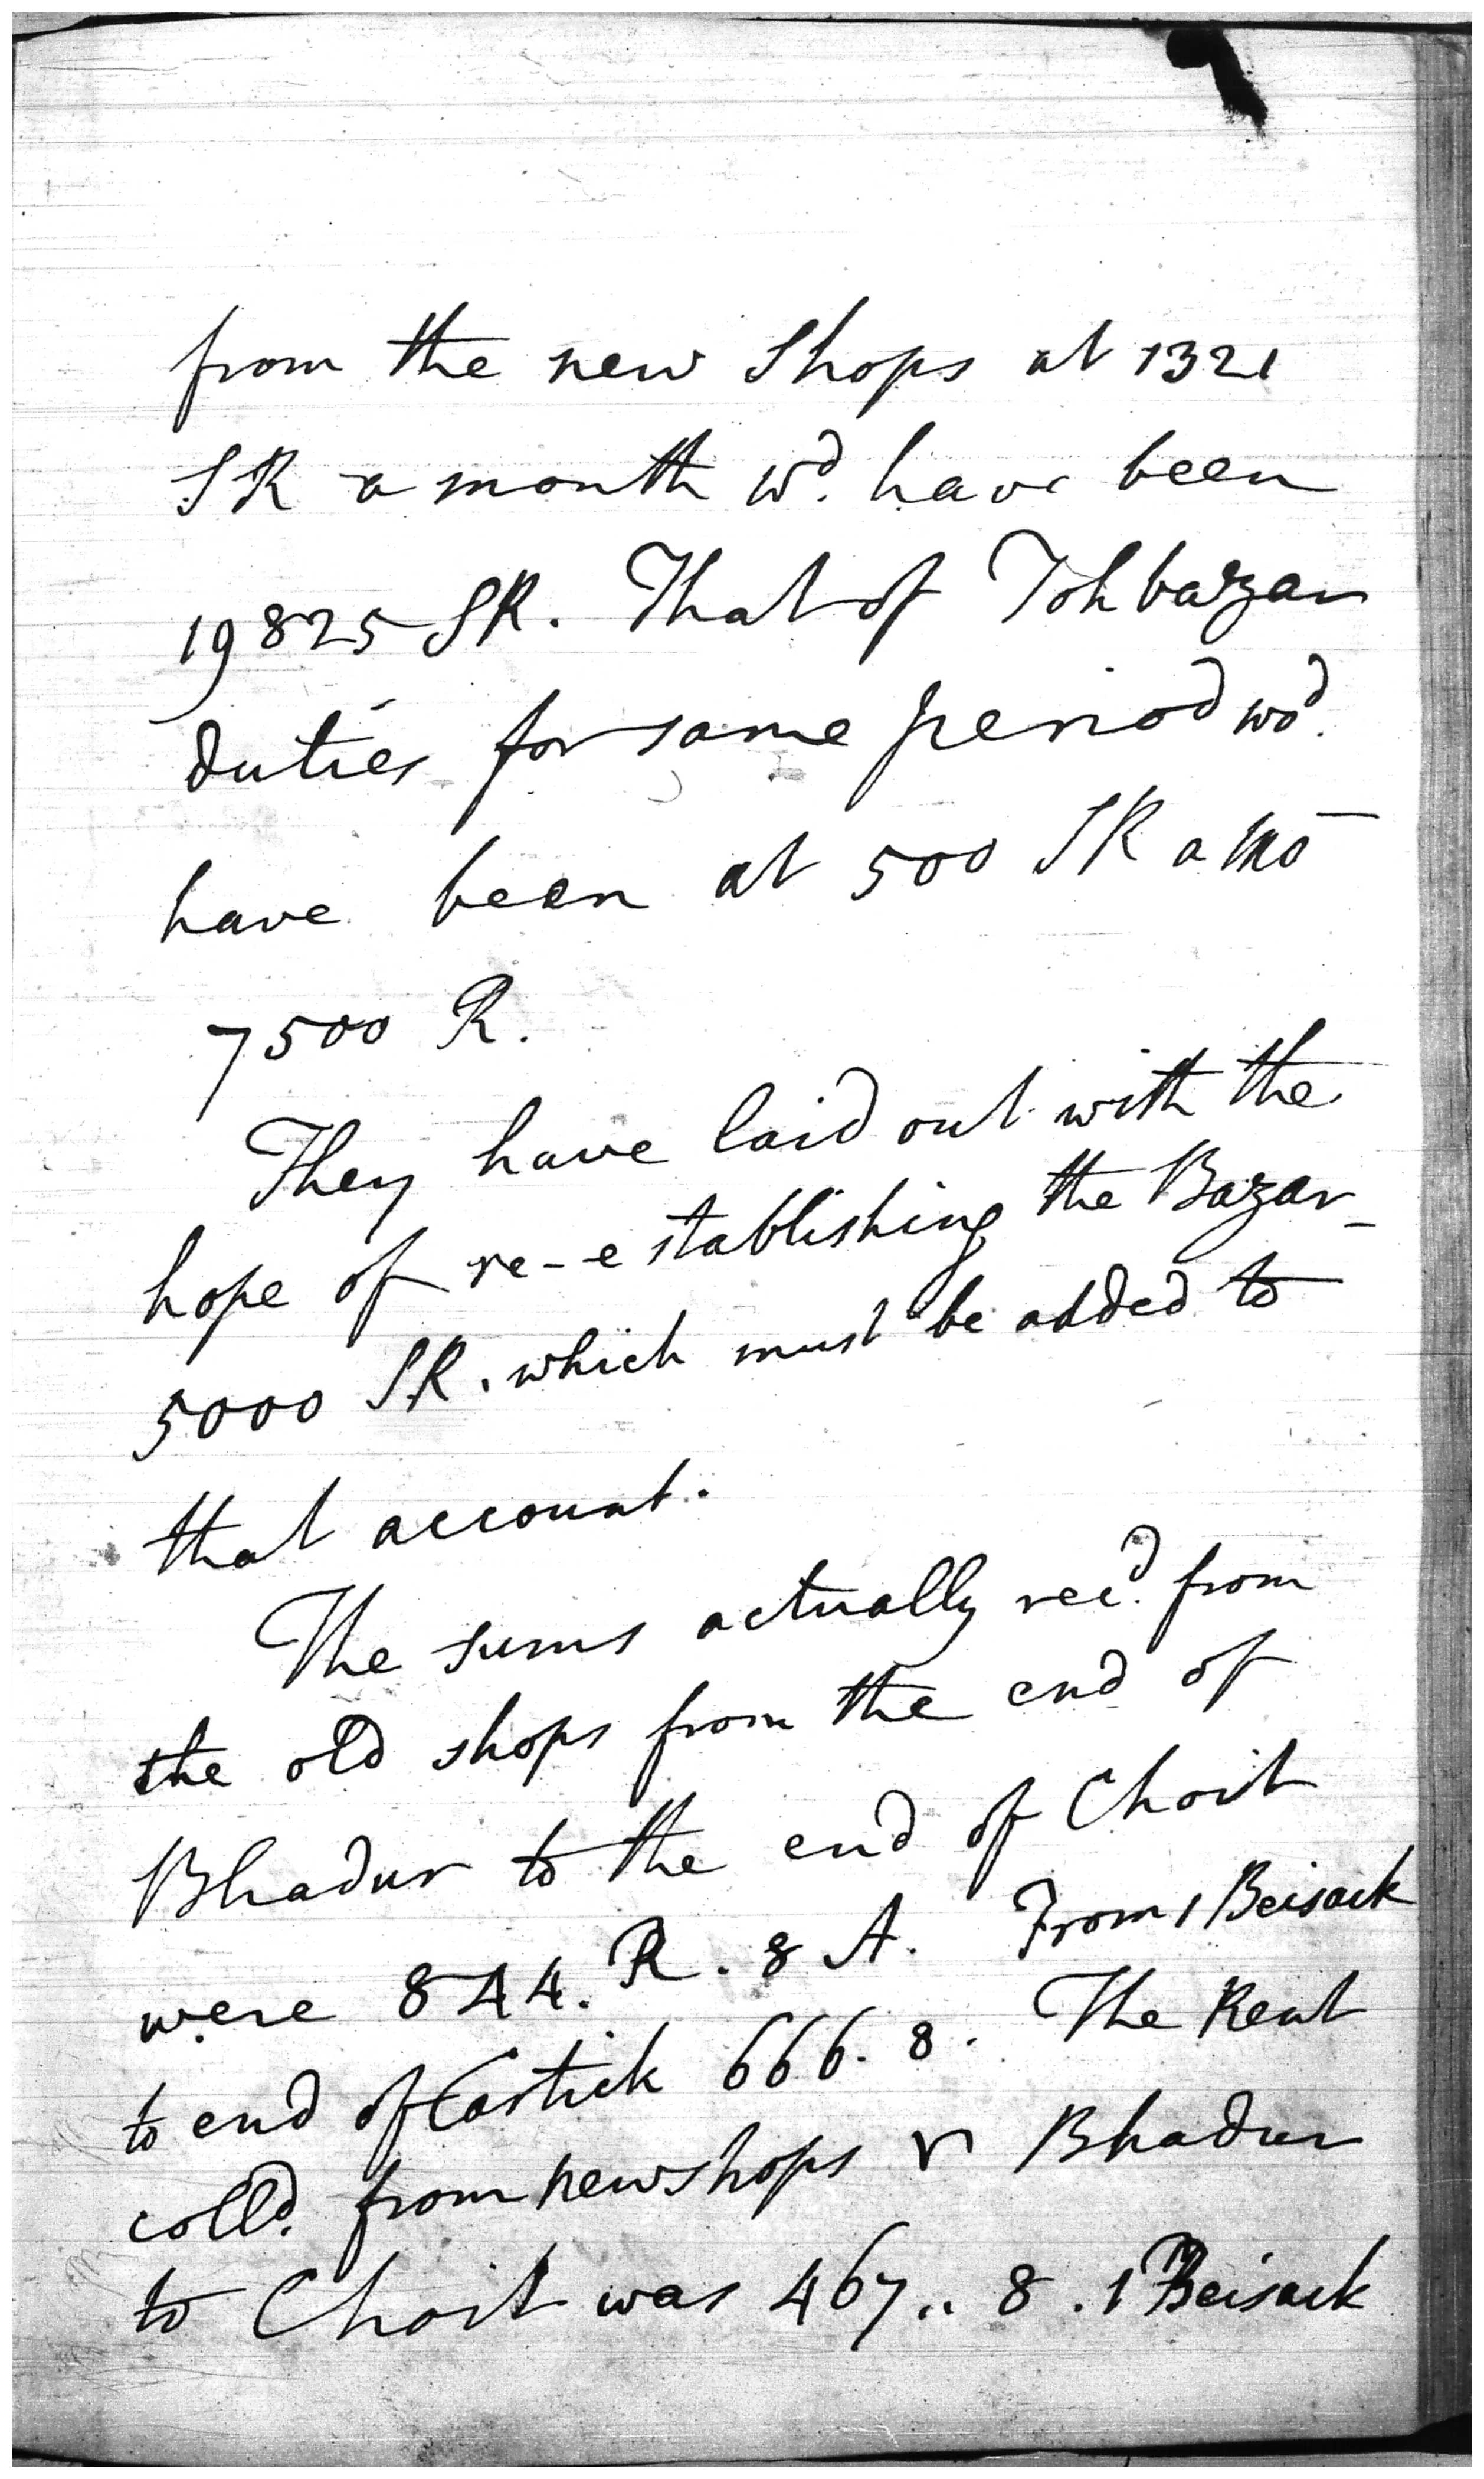 from the new Shops at 1321
SR a month wd. have been
19825 SR. That of Tohbazar
duties for same period wod.
have been at 500 SR a mo
7500 R.
They have laid out with the
hope of re-establishing the Bazar
5000 SR. which must be added to
that account.
The sums actually recd. from
the old shops from the end of
Bhadur to the end of Choit
were 844. R. 8 A. From 1 Beisack
to end of Castick 666. 8. The Rent
colld. from new shops Bhadur
to Choit was 467.. 8. 1 Beisack